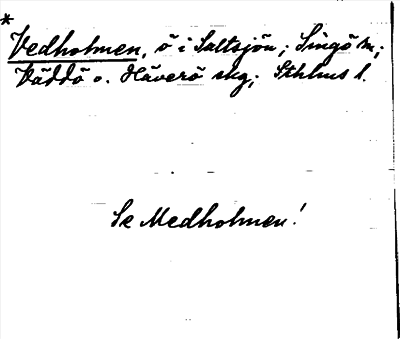 *
Vedholmen, ö i Saltsjön; Singö sn;
Väddö o. Häverö skg; Sthlms l.
Se Medholmen!